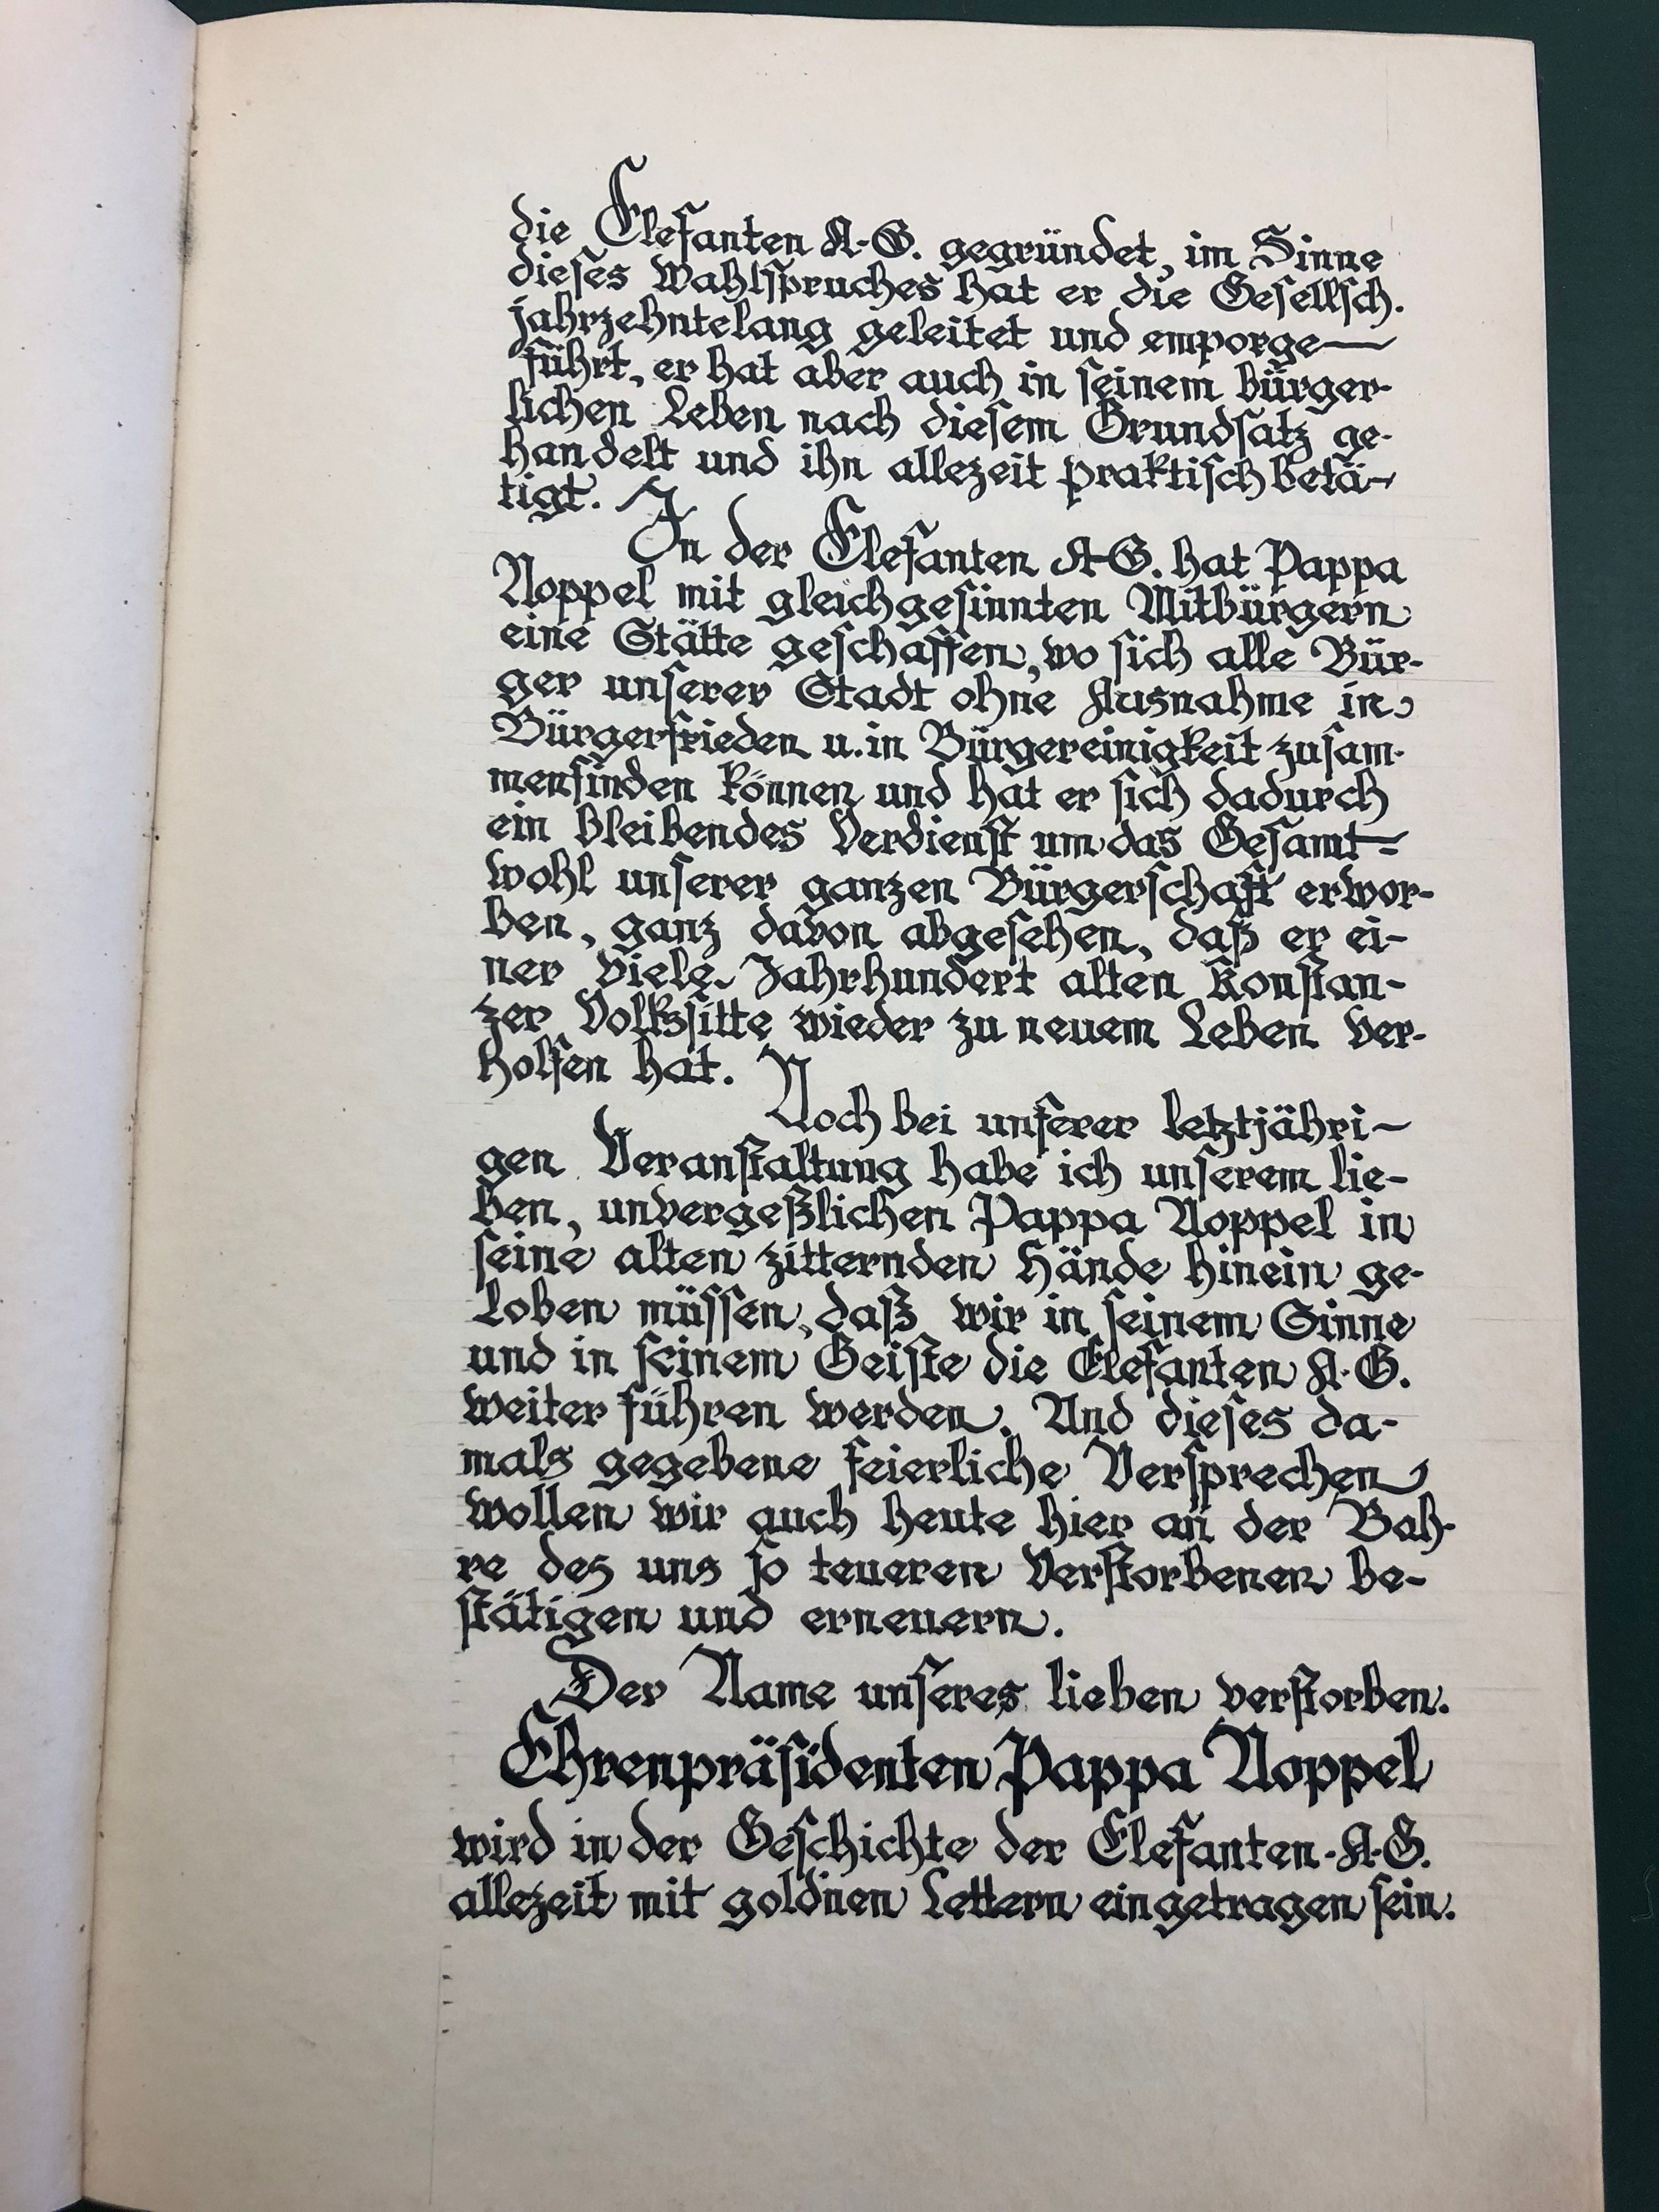 die Elefanten A.-G. gegründet, im Sinne
dieses Wahlspruches hat er die Gesellsch.
jahrzehntelang geleitet und emporge-
führt, er hat aber auch in seinem bürger-
lichen Leben nach diesem Grundsatz ge-
handelt und ihn allezeit praktisch betä-
tigt.
In der Elefanten A-G. hat Pappa
Noppel mit gleichgesinnten Mitbürgern
eine Stätte geschaffen, wo sich alle Bür-
ger unserer Stadt ohne Ausnahme in
Bürgerfrieden u. in Bürgereinigkeit zusam-
menfinden können und hat er sich dadurch
ein bleibendes Verdienst um das Gesamt-
wohl unserer ganzen Bürgerschaft erwor-
ben, ganz davon abgesehen, daß er ei-
ner viele Jahrhundert alten Konstan-
zer Volkssitte wieder zu neuem Leben ver-
holfen hat.
Noch bei unserer letztjähri-
gen Veranstaltung habe ich unserem lie-
ben, unvergeßlichen Pappa Noppel in
seine alten zitternden Hände hinein ge-
loben müssen, daß wir in seinem Sinne
und in seinem Geiste die Elefanten A.G.
weiter führen werden. Und dieses da-
mals gegebene feierliche Versprechen
wollen wir auch heute hier an der Bah-
re des uns so teueren Verstorbenen be-
stätigen und erneuern.
Der Name unseres lieben verstorben.
Ehrenpräsidenten Pappa Noppel
wird in der Geschichte der Elefanten-A.G.
allezeit mit gold'nen Lettern eingetragen sein.